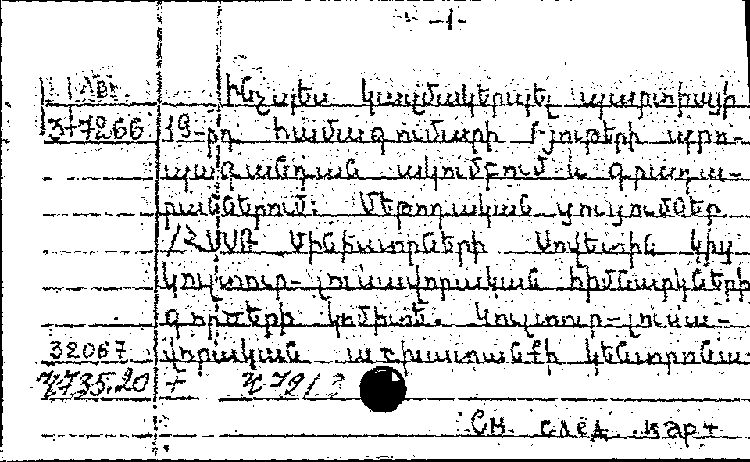 -1-
Ինչպես կազմակերպել պարտիայի
37266 19-րդ համագումարի նյութերի պրո-
պագանդան ակումբում և գրադա-
րաններում: Մեթոդական ցուցումներ
/ՀՍՍՌ Մինիստրների Սովետին կից
կուլտուր-լուսավորական հիմնարկների
գործերի կոմիտե. Կուլտուր-լուսա-
32067 վորական աշխատանքի կենտրոնա-
Ч735.20 +
См. след. карт